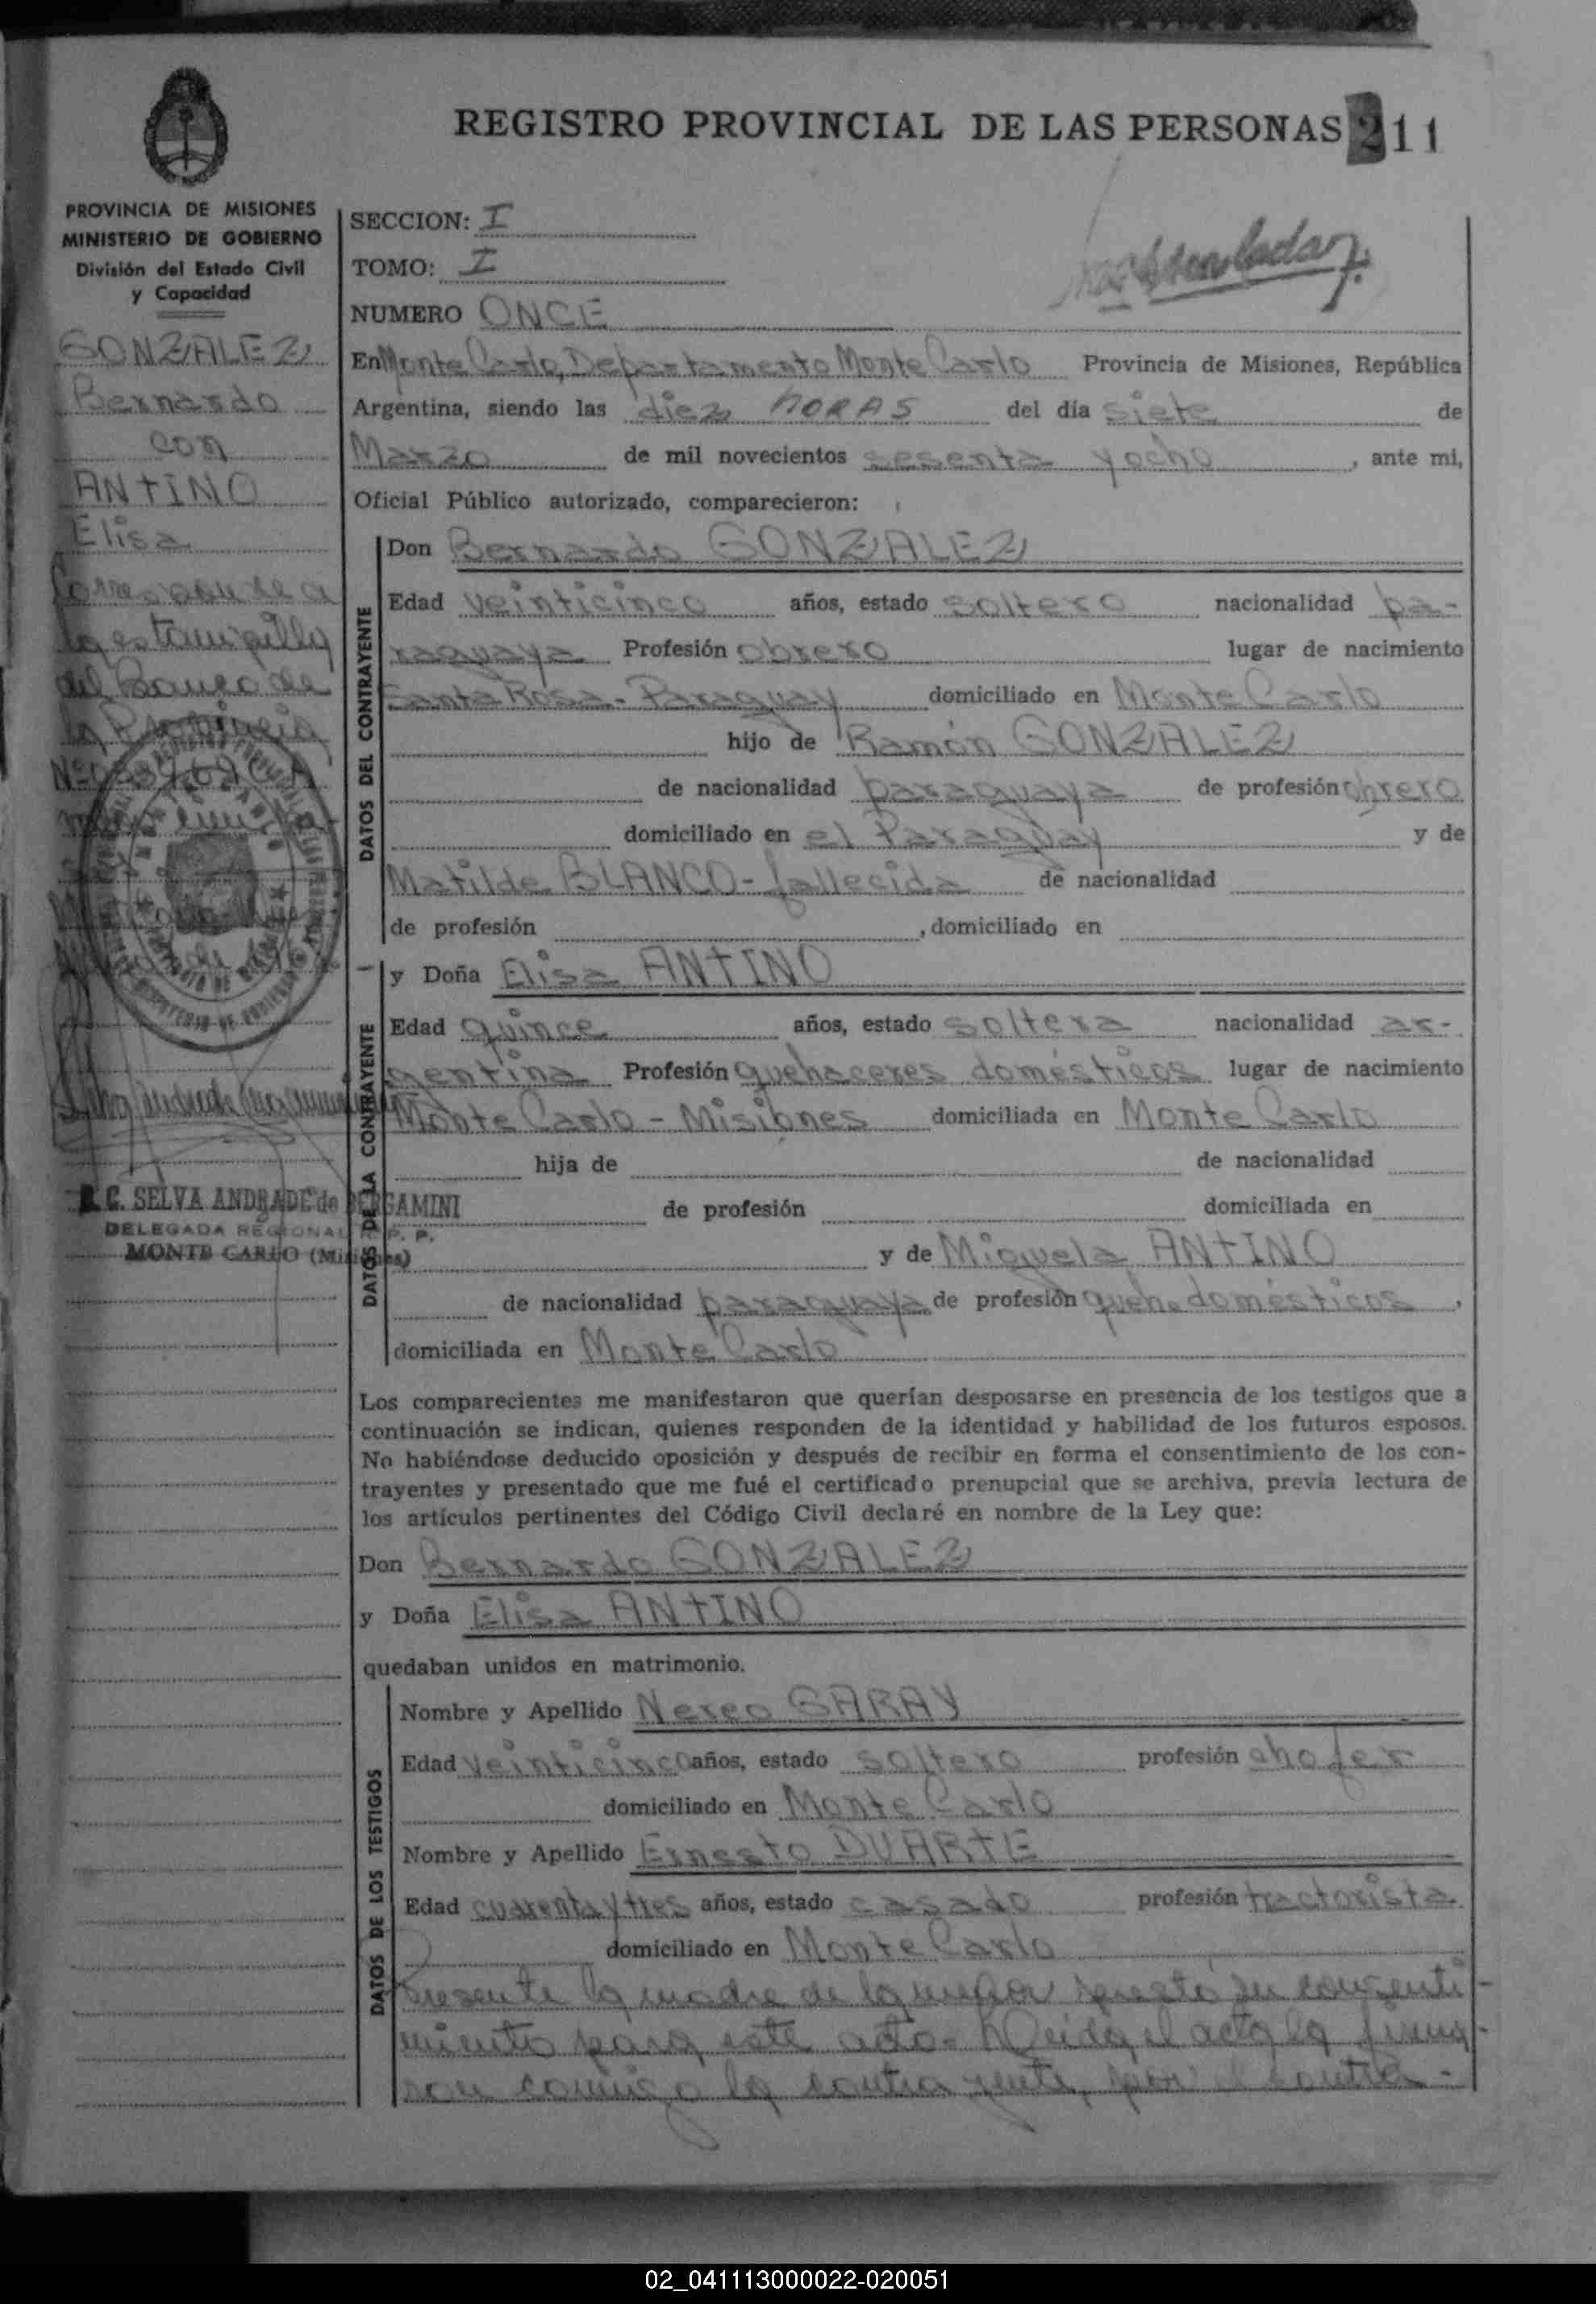 REGISTRO PROVINCIAL DE LAS PERSONAS 211
PROVINCIA DE MISIONES
MINISTERIO DE GOBIERNO
División del Estado Civil
y Capacidad
GONZALEZ
Bernardo
con
ANTINO
Elisa
Corresponde a
la estampilla
del Banco de
la Provincia
S. C. SELVA ANDRADE de BERGAMINI
DELEGADA REGIONAL R. P. P.
MONTE CARLO (Misiones)
SECCION: I
TOMO: I
NUMERO ONCE
En Monte Carlo, Departamento Monte Carlo Provincia de Misiones, República
Argentina, siendo las diez HORAS del día siete de
Marzo de mil novecientos sesenta y ocho, ante mi,
Oficial Público autorizado, comparecieron:
DATOS DEL CONTRAYENTE
Don Bernardo GONZALEZ
Edad veinticinco años, estado soltero nacionalidad pa-
raguaya Profesión obrero lugar de nacimiento
Santa Rosa - Paraguay domiciliado en Monte Carlo
hijo de Ramón GONZALEZ
de nacionalidad paraguaya de profesión obrero
domiciliado en el Paraguay y de
Matilde BLANCO - fallecida de nacionalidad
de profesión , domiciliado en
DATOS DE LA CONTRAYENTE
y Doña Elisa ANTINO
Edad quince años, estado soltera nacionalidad ar-
gentina Profesión quehaceres domésticos lugar de nacimiento
Monte Carlo - Misiones domiciliada en Monte Carlo
hija de de nacionalidad
de profesión domiciliada en
y de Miguela ANTINO
de nacionalidad paraguaya de profesión queh. domésticos ,
domiciliada en Monte Carlo
Los comparecientes me manifestaron que querían desposarse en presencia de los testigos que a
continuación se indican, quienes responden de la identidad y habilidad de los futuros esposos.
No habiéndose deducido oposición y después de recibir en forma el consentimiento de los con-
trayentes y presentado que me fué el certificado prenupcial que se archiva, previa lectura de
los artículos pertinentes del Código Civil declaré en nombre de la Ley que:
Don Bernardo GONZALEZ
y Doña Elisa ANTINO
quedaban unidos en matrimonio.
DATOS DE LOS TESTIGOS
Nombre y Apellido Nereo GARAY
Edad veinticinco años, estado soltero profesión chofer
domiciliado en Monte Carlo
Nombre y Apellido Ernesto DUARTE
Edad cuarenta y tres años, estado casado profesión tractorista
domiciliado en Monte Carlo
Presente la madre de la menor presta su consenti-
miento para este acto - Leída el acta la firma-
ron conmigo la contrayente, por el contra-
02_041113000022-020051